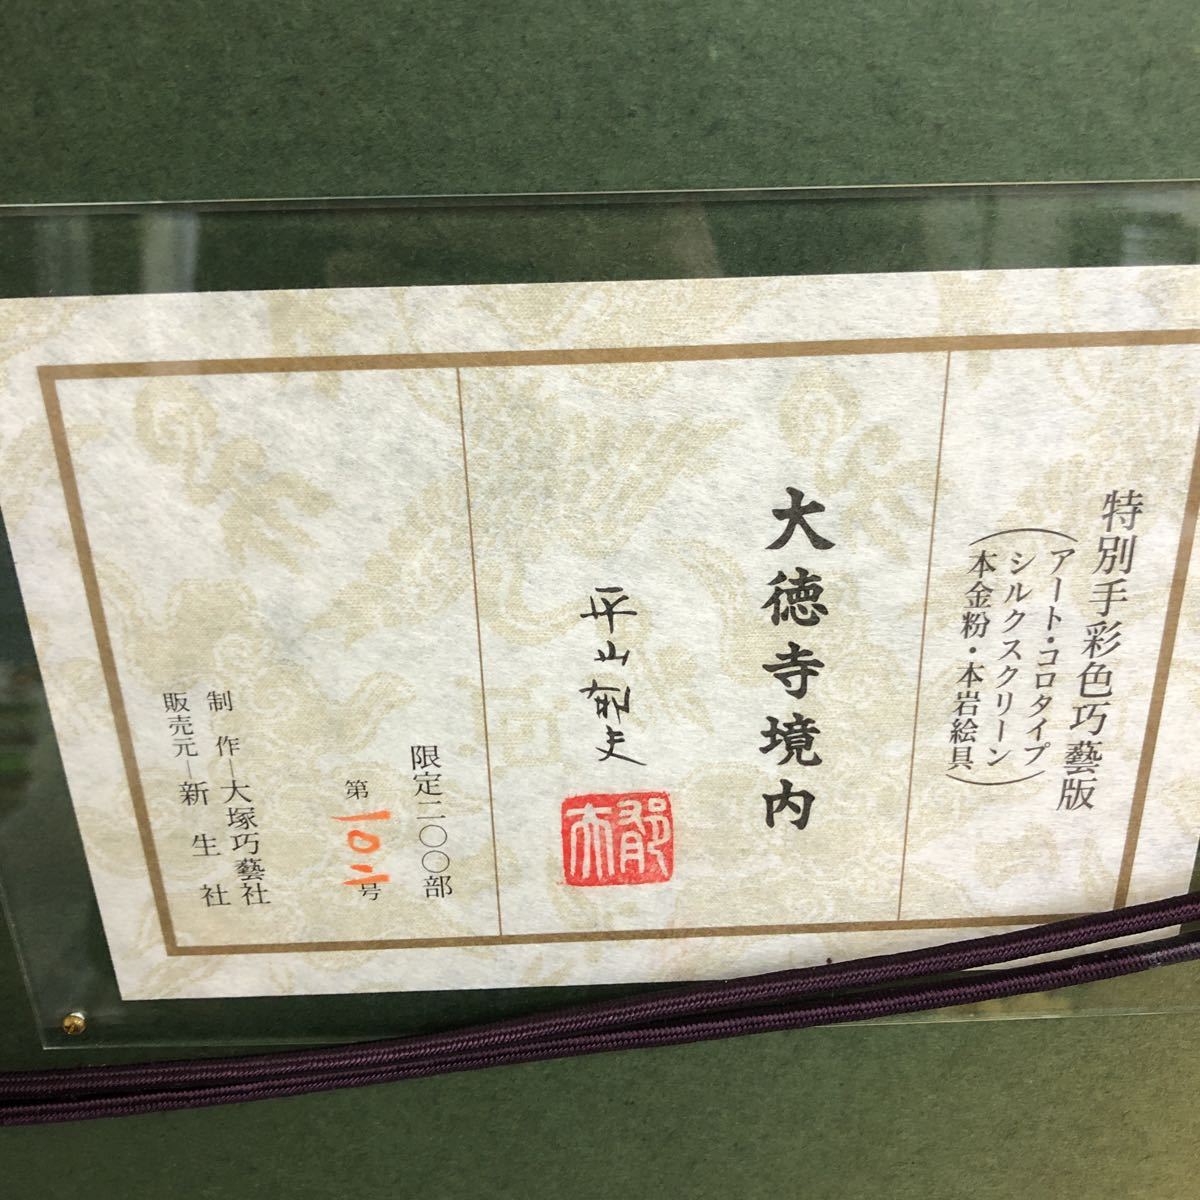 特別手彩色巧藝版
(アート・コロタイプ
シルクスクリーン
本金粉・本岩絵具)
大徳寺境内
平山郁夫
郁夫
限定二〇〇部
第一〇二号
制作―大塚巧藝社
販売元―新生社